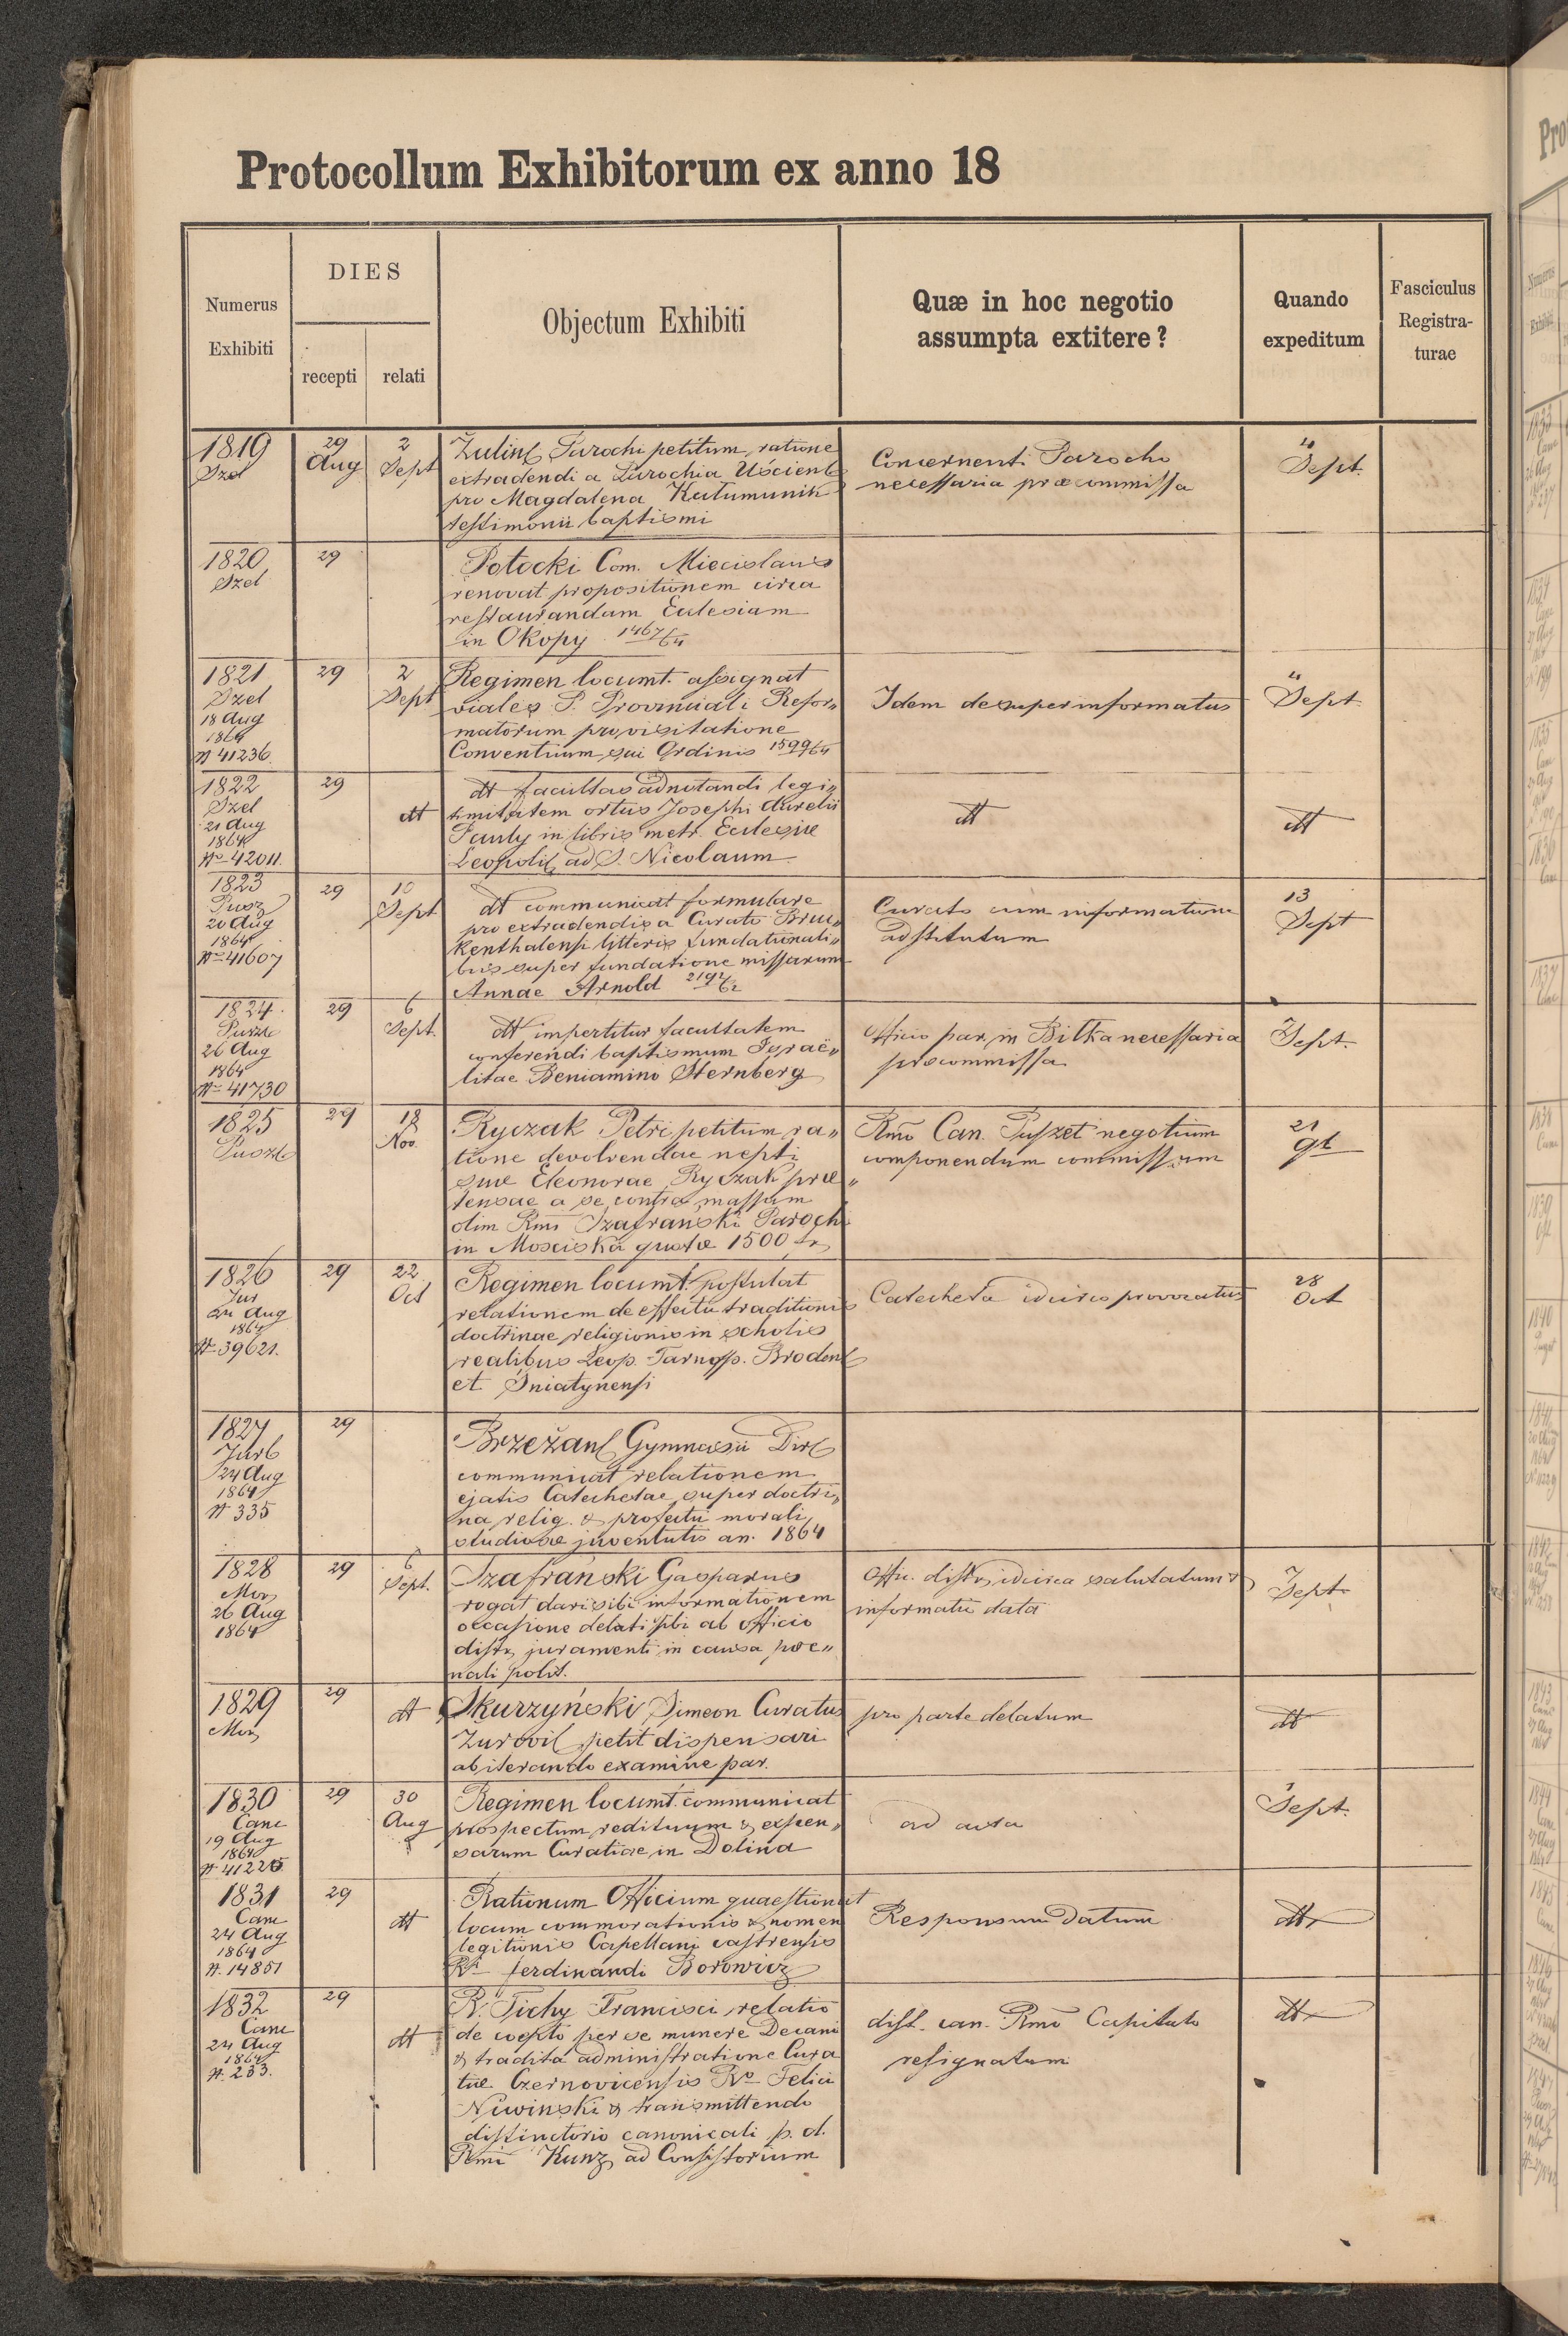 Protocollum Exhibitorum ex anno 18
Numerus Exhibiti
DIES
recepti
relati
Objectum Exhibiti
Quæ in hoc negotio
assumpta extitere?
Quando
expeditum
Fasciculus
Registra-
turae
1819
Szel
29
Aug
2
Sept
Žulins Parochi petitum, ratione
extradendi a Parochia
pro Magdalena
testimonii baptismi
Concernenti Parocho
necessaria præcommissa
4
Sept.
1820
Szel
29
Potocki Com. Miecislaus
renovat propositionem circa
restaurandam Ecclesiam
in Okopy 1467/64
1821
Szel
18 Aug
1864
N 41236.
29
2
Sept
Regimen locumt. assignat
viales P. Provinciali Refor„
matorum pro visitatione
Conventuum sui Ordinis 1599/64
Idem desuper informatus
4
Sept.
1822
Szel
21 Aug
1864
No 42011.
29
dt
dt facultas adnotandi legi„
timitatem ortus Josephi Aurelii
Pauly in libris metr. Ecclesiæ
Leopolis ad S. Nicolaum
dt
dt
1823
Pusz
20 Aug
1864
No 41607
29
10
Sept
dt communicat formulare
pro extradendis a Curato Bruc„
kenthalensi litteris fundationali„
bus super fundatione missarum
Annae Arnold
Curato cum informatione
adstitutum
13
Sept
1824.
26 Aug
1864
No 41730
29
6
Sept.
dt impertitur facultatem
conferendi baptismum Israë„
litae Beniamino Sternberg
Officio par. in Bilka necessaria
præcommissa
7
Sept.
1825
29
18
Nov.
Ryczak Petri petitum ra„
tione devolvendae nepti
suæ Eleonorae Ryczak præ„
tensae a se contra massam
olim Rmi Szafranski Parochi
in Mosciska quotæ 1500 fr
Rmo Can. Puszet negotium
componendum commissum
21
9b
1826
Jur
1864
No 39621.
29
22
Oct
Regimen locumt. postulat
relationem de effectu traditionis
doctrinae religionis in scholis
realibus Leop. Tarnop. Brodens
et Sniatynensi
Catecheta idcirco provocatus
28
Oct
1827
24 Aug
1864
N 335
29
Brzežans Gymnasii Dir
communicat relationem
ejatis Catechetae super doctri„
na relig. & profectu morali
studiosæ juventutis an. 1864
1828
Mor
26 Aug
1864
29
6
Sept.
Szafrański Gasparus
rogat dari sibi informationem
occasione delati sibi ab officio
distr. juramenti in causa poe„
nali polit.
Offic. distr. idcirca salutatum &
informatio data
7
Sept.
1829
Mor
29
dt
Skurzyński Simeon Curatus
petit dispensari
ab iterando examine par.
pro parte delatum
dt
1830
Canc
19 Aug
1864
N 41225
29
30
Aug
Regimen locumt. communicat
prospectum redituum & expen„
sarum Curatiæ in Dolina
ad acta
1
Sept.
1831
Canc
24 Aug
1864
N. 14851
29
dt
Rationum Officium quaestionat
locum commorationis & nomen
legitionis Capellani castrensis
Ri ferdinandi Borowicz
Responsum datum
dt
1832
Canc
24 Aug
1864
N. 233.
29
dt
R. Tichy Francisci relatio
de coepto per se munere Decani
& tradita administratione Cura
tiæ Czernovicensis Ro Felici
Niwinski & transmittendo
distinctorio canonicali p. d.
Rmi Kunz ad Consistorium
dist. can. Rmo Capitulo
resignatum
dt